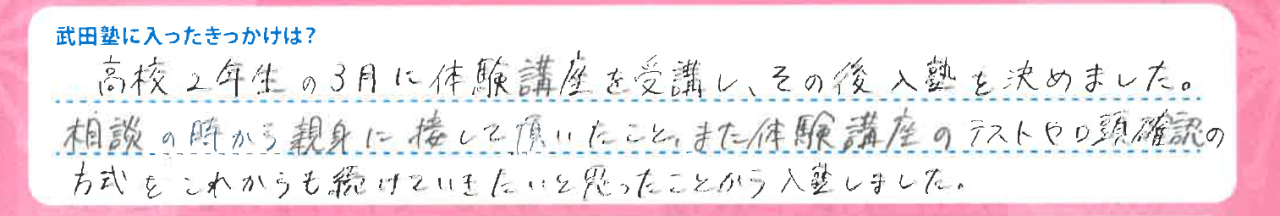 武田塾に入ったきっかけは？
高校2年生の3月に体験講座を受講し、その後入塾を決めました。
相談の時から親身に接して頂いたこと、また体験講座のテストや口頭確認の
方式をこれからも続けていきたいと思ったことから入塾しました。